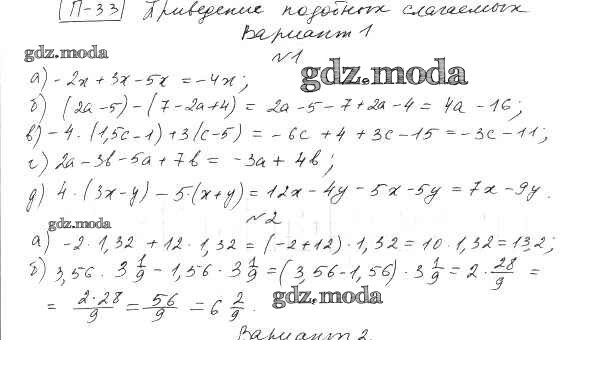 П-33 Приведение подобных слагаемых
Вариант 1
gdz.moda
№1
gdz.moda
а) -2x + 3x - 5x = -4x;
б) (2a - 5) - (7 - 2a + 4) = 2a - 5 - 7 + 2a - 4 = 4a - 16;
в) -4 · (1,5c - 1) + 3(c - 5) = -6c + 4 + 3c - 15 = -3c - 11;
г) 2a - 3b - 5a + 7b = -3a + 4b;
д) 4 · (3x - y) - 5 · (x + y) = 12x - 4y - 5x - 5y = 7x - 9y.
gdz.moda
№2
а) -2 · 1,32 + 12 · 1,32 = (-2 + 12) · 1,32 = 10 · 1,32 = 13,2;
б) 3,56 · 3 1/9 - 1,56 · 3 1/9 = (3,56 - 1,56) · 3 1/9 = 2 · 28/9 =
gdz.moda
= 2·28/9 = 56/9 = 6 2/9.
Вариант 2.